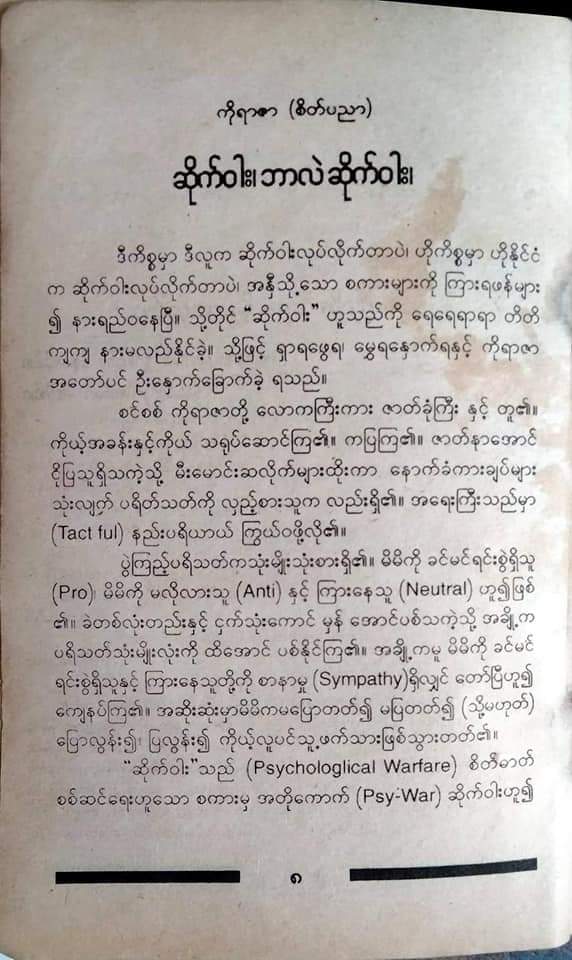 ကိုရာဇာ (စိတ်ပညာ)
ဆိုက်ဝါး၊ ဘာလဲ ဆိုက်ဝါး၊
ဒီကိစ္စမှာ ဒီလူက ဆိုက်ဝါးလုပ်လိုက်တာပဲ၊ ဟိုကိစ္စမှာ ဟိုနိုင်ငံ
က ဆိုက်ဝါးလုပ်လိုက်တာပဲ၊ အနှီသို့သော စကားများကို ကြားရဖန်များ
၍ နားရည်ဝနေပြီ။ သို့တိုင် “ဆိုက်ဝါး” ဟူသည်ကို ရေရေရာရာ တိတိ
ကျကျ နားမလည်နိုင်ခဲ့။ သို့ဖြင့် ရှာရဖွေရ၊ မွှေရနှောက်ရနှင့် ကိုရာဇာ
အတော်ပင် ဦးနှောက်ခြောက်ခဲ့ ရသည်။
စင်စစ် ကိုရာဇာတို့ လောကကြီးကား ဇာတ်ခုံကြီး နှင့် တူ၏။
ကိုယ့်အခန်းနှင့်ကိုယ် သရုပ်ဆောင်ကြ၏။ ကပြကြ၏။ ဇာတ်နာအောင်
ငိုပြသူရှိသကဲ့သို့ မီးမောင်းဆလိုက်များထိုးကာ နောက်ခံကားချပ်များ
သုံးလျှက် ပရိတ်သတ်ကို လှည့်စားသူက လည်းရှိ၏။ အရေးကြီးသည်မှာ
(Tact ful) နည်းပရိယာယ် ကြွယ်ဝဖို့လို၏။
ပွဲကြည့်ပရိသတ်ကသုံးမျိုးသုံးစားရှိ၏။ မိမိကို ခင်မင်ရင်းစွဲရှိသူ
(Pro)၊ မိမိကို မလိုလားသူ (Anti) နှင့် ကြားနေသူ (Neutral) ဟူ၍ဖြစ်
၏။ ခဲတစ်လုံးတည်းနှင့် ငှက်သုံးကောင် မှန် အောင်ပစ်သကဲ့သို့ အချို့က
ပရိသတ်သုံးမျိုးလုံးကို ထိအောင် ပစ်နိုင်ကြ၏။ အချို့ကမူ မိမိကို ခင်မင်
ရင်းစွဲရှိသူနှင့် ကြားနေသူတို့ကို စာနာမှု (Sympathy)ရှိလျှင် တော်ပြီဟူ၍
ကျေနပ်ကြ၏။ အဆိုးဆုံးမှာမိမိကမပြောတတ်၍ မပြတတ်၍ (သို့မဟုတ်)
ပြောလွန်း၍၊ ပြလွန်း၍ ကိုယ့်လူပင်သူ့ဖက်သားဖြစ်သွားတတ်၏။
“ဆိုက်ဝါး”သည် (Psychologlical Warfare) စိတ်ဓာတ်
စစ်ဆင်ရေးဟူသော စကားမှ အတိုကောက် (Psy-War) ဆိုက်ဝါးဟူ၍
၈